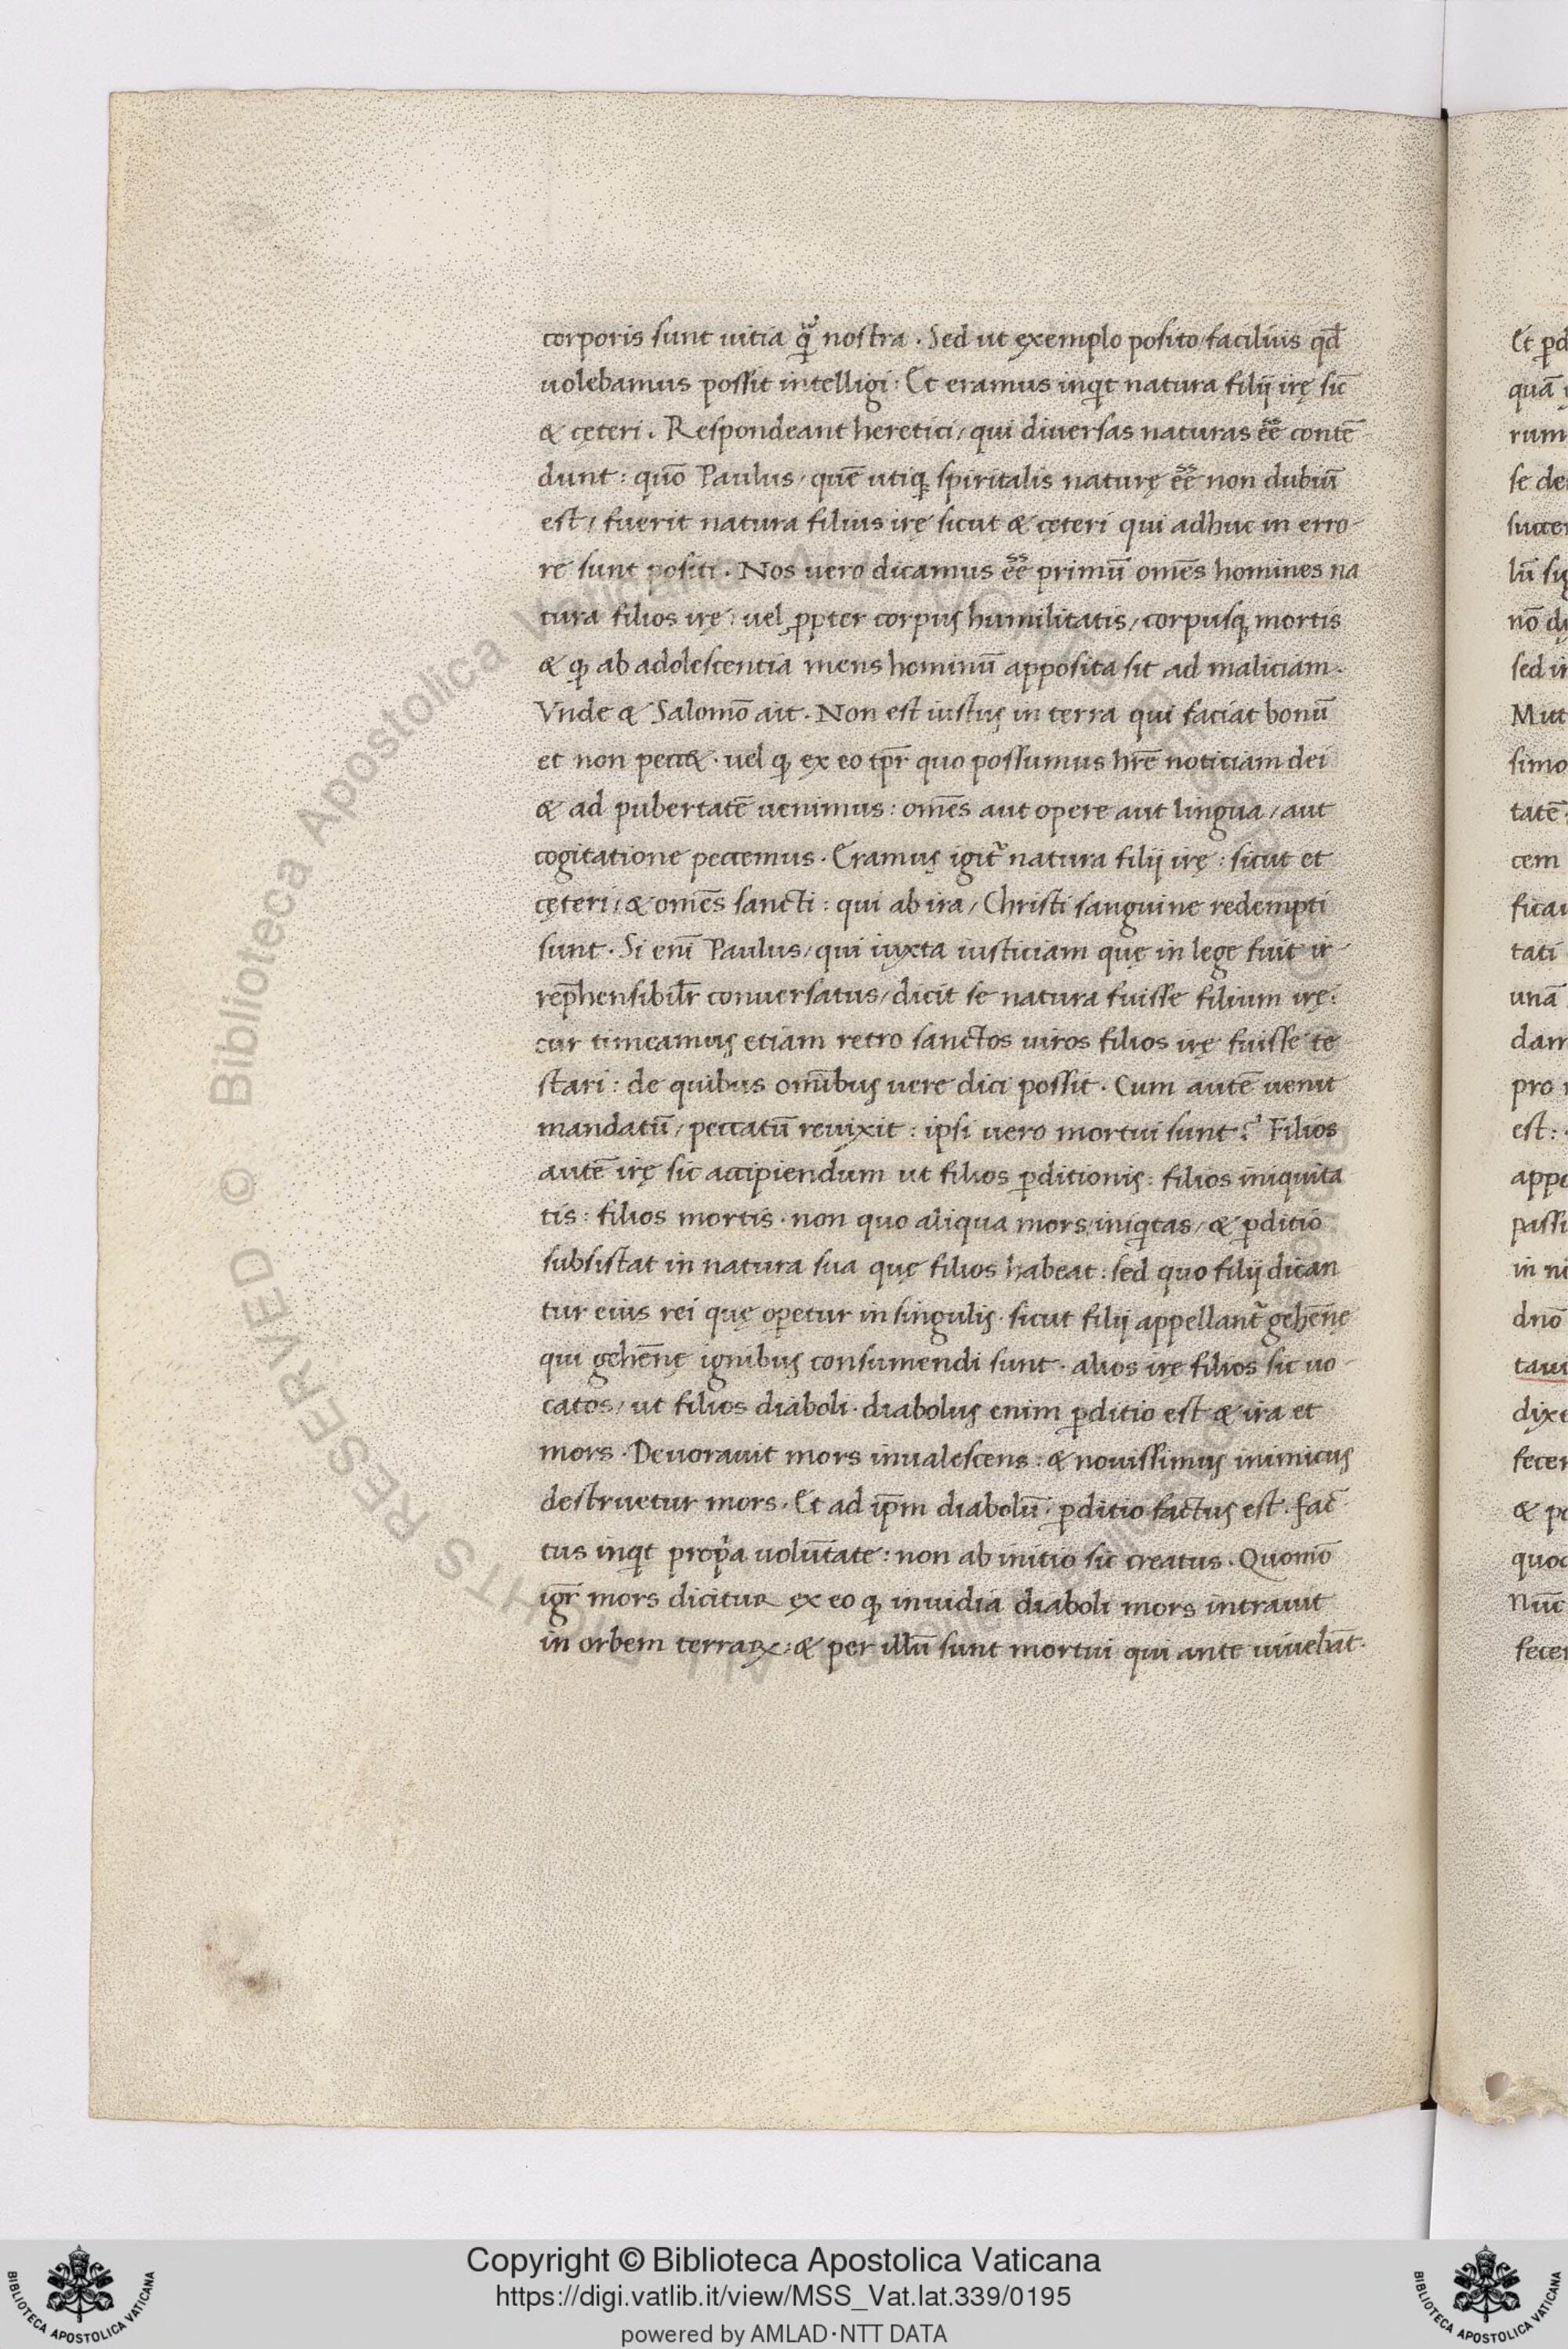 corporis sunt uitia q̃ nostra . Sed ut exemplo posito / facilius qđ
uolebamus possit intelligi : Et eramus inqt natura filij irę sic̄
& cęteri . Respondeant heretici / qui diuersas naturas ēē contē
dunt : quō Paulus / quē utiq; spiritalis naturę ēē non dubiū
est / fuerit natura filius irę sicut & cęteri qui adhuc in erro-
re sunt positi . Nos uero dicamus ēē primū om̄es homines na
tura filios irę : uel ꝓpter corpus humilitatis / corpusq; mortis
& ꝙ ab adolescentia mens hominū apposita sit ad maliciam .
Vnde & Salomō ait . Non est iustus in terra qui faciat bonū
et non pecc& . uel ꝙ ex eo tp̄r quo possumus hr̄e noticiam dei
& ad pubertatē uenimus : om̄es aut opere aut lingua / aut
cogitatione peccemus . Eramus igit̃ natura filij irę : sicut et
cęteri / & om̄es sancti : qui ab ira / Christi sanguine redempti
sunt . Si eni̅ Paulus / qui iuxta iusticiam quę in lege fuit ir-
rep̄hensibilr̄ conuersatus / dicit se natura fuisse filium irę :
cur timeamus etiam retro sanctos uiros filios irę fuisse te
stari : de quibus omi̅bus uere dici possit . Cum autē uenit
mandatū / peccatū reuixit : ipsi uero mortui sunt ? Filios
autē irę sic accipiendum ut filios ꝑditionis : filios iniquita
tis : filios mortis . non quo aliqua mors / iniqtas / & ꝑditio
subsistat in natura sua quę filios habeat : sed quo filij dican
tur eius rei quę oꝑetur in singulis . sicut filij appellant̃ gehēnę
qui gehēnę ignibus consumendi sunt . alios irę filios sic uo-
catos / ut filios diaboli . diabolus enim ꝑditio est & ira et
mors . Deuorauit mors inualescens : & nouissimus inimicus
destruetur mors . Et ad ip̄m diabolū . ꝑditio factus est . fac̄
tus inqt propa uolūtate : non ab initio sic creatus . Quomō
igr̄ mors dicitur ex eo ꝙ inuidia diaboli mors intrauit
in orbem terraꝝ : & per illū sunt mortui qui ante uiuebāt .
Et ꝑd
quā
rum
se de
succe
lū si
nō d
sed i
Mut
simo
tatē
cem
ficau
tati
unā
dam
pro
est :
appo
passi
in n
dnō
taui
dixe
fecer
& p
quo
Nūc
fecer
© Biblioteca Apostolica Vaticana
ALL RIGHTS RESERVED
Copyright © Biblioteca Apostolica Vaticana
https://digi.vatlib.it/view/MSS_Vat.lat.339/0195
powered by AMLAD·NTT DATA
BIBLIOTECA APOSTOLICA VATICANA
BIBLIOTECA APOSTOLICA VATICANA